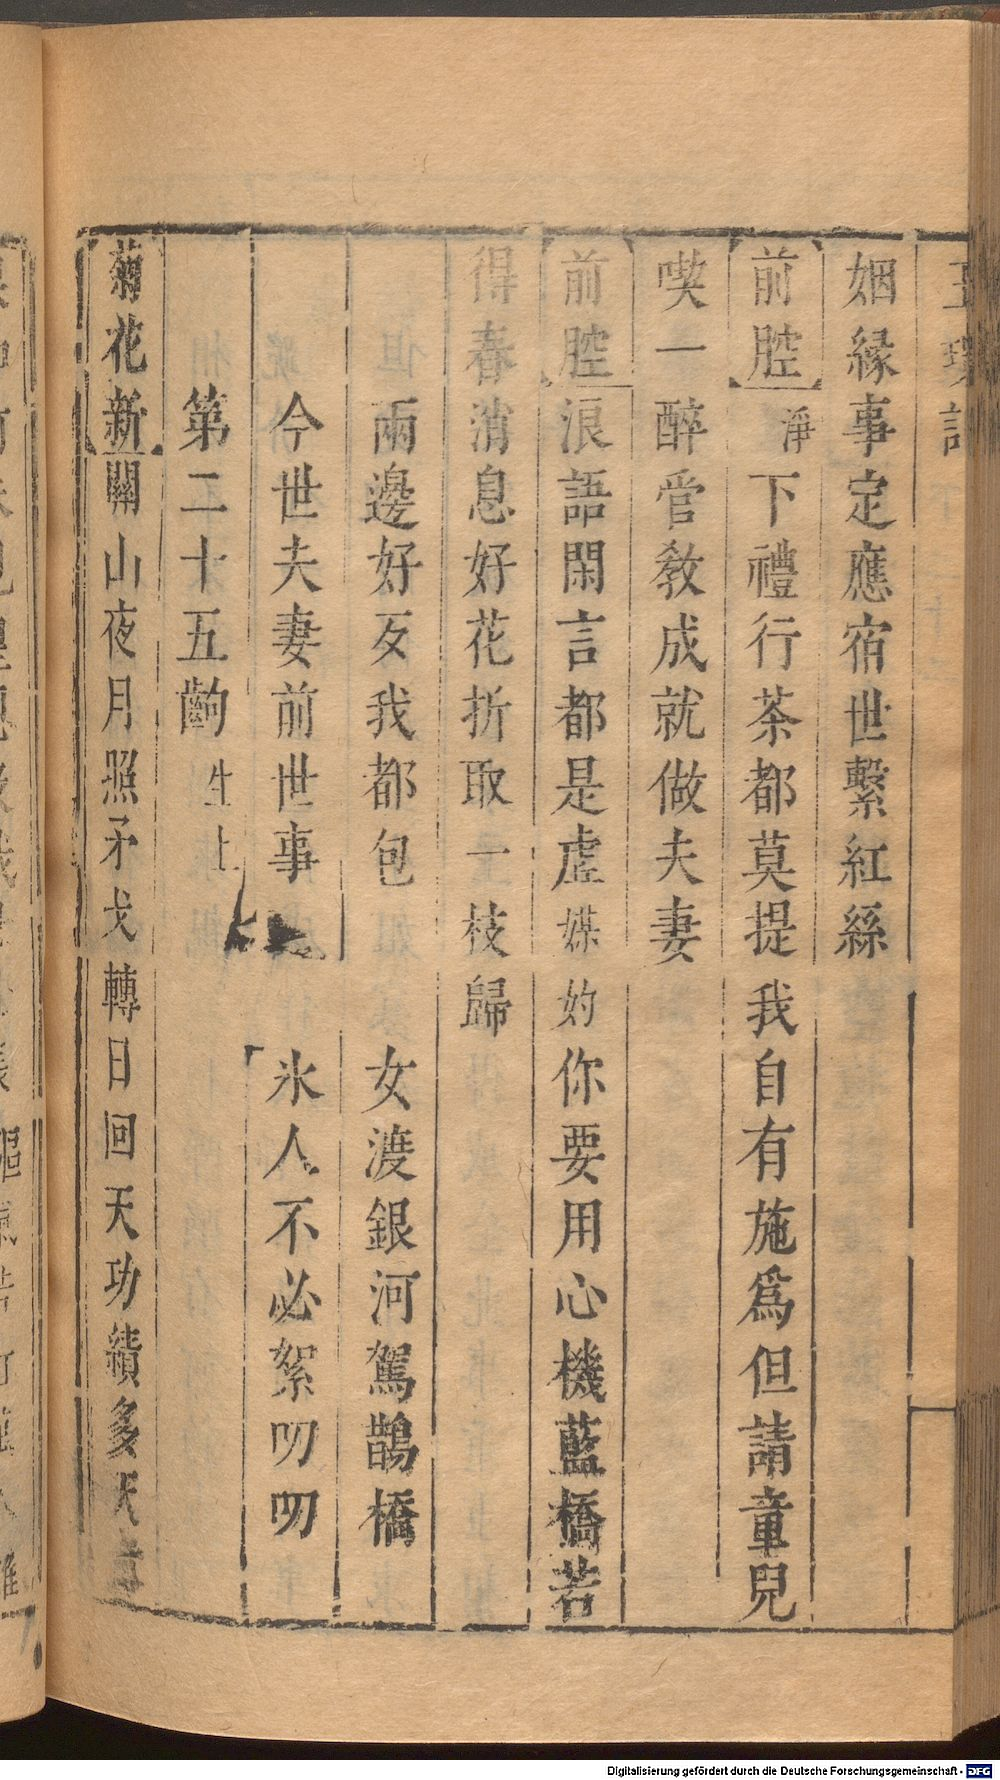 姻緣事定應宿世繫紅絲
前腔 淨 下禮行茶都莫提我自有施爲但請童兒
喫一醉管教成就做夫妻
前腔 浪語閑言都是虛媒妁你要用心機藍橋若
得春消息好花折取一枝歸
兩邊好歹我都包 女渡銀河駕鵲橋
今世夫妻前世事 氷人不必絮叨叨
第二十五齣 生上
菊花新 關山夜月照矛戈轉日回天功績多天
Digitalisierung gefördert durch die Deutsche Forschungsgemeinschaft - DFG